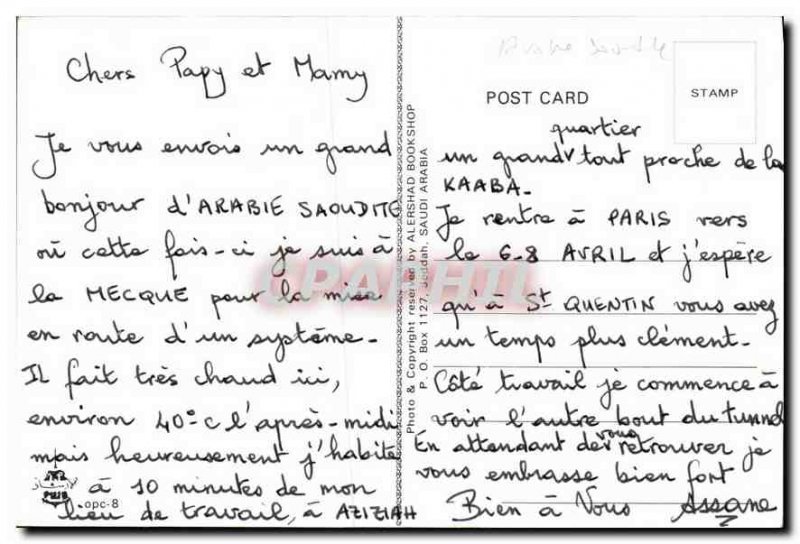 Chers Papy et Mamy
Je vous envois un grand
bonjour d'ARABIE SAOUDITE
où cette fois-ci je suis à
la MECQUE pour la mise
en route d'un système.
Il fait très chaud ici,
environ 40°c l'après-midi
mais heureusement j'habite
à 10 minutes de mon
lieu de travail, à AZIZIAH
opc-8
Photo & Copyright reserved by ALERSHAD BOOKSHOP
P. O. Box 1127, Jeddah, SAUDI ARABIA
POST CARD
STAMP
quartier
un grand tout proche de la
KAABA.
Je rentre à PARIS vers
le 6-8 AVRIL et j'espère
qu'à St QUENTIN vous avez
un temps plus clément.
Côté travail je commence à
voir l'autre bout du tunnel
En attendant de vous retrouver je
vous embrasse bien fort
Bien à Vous Assane